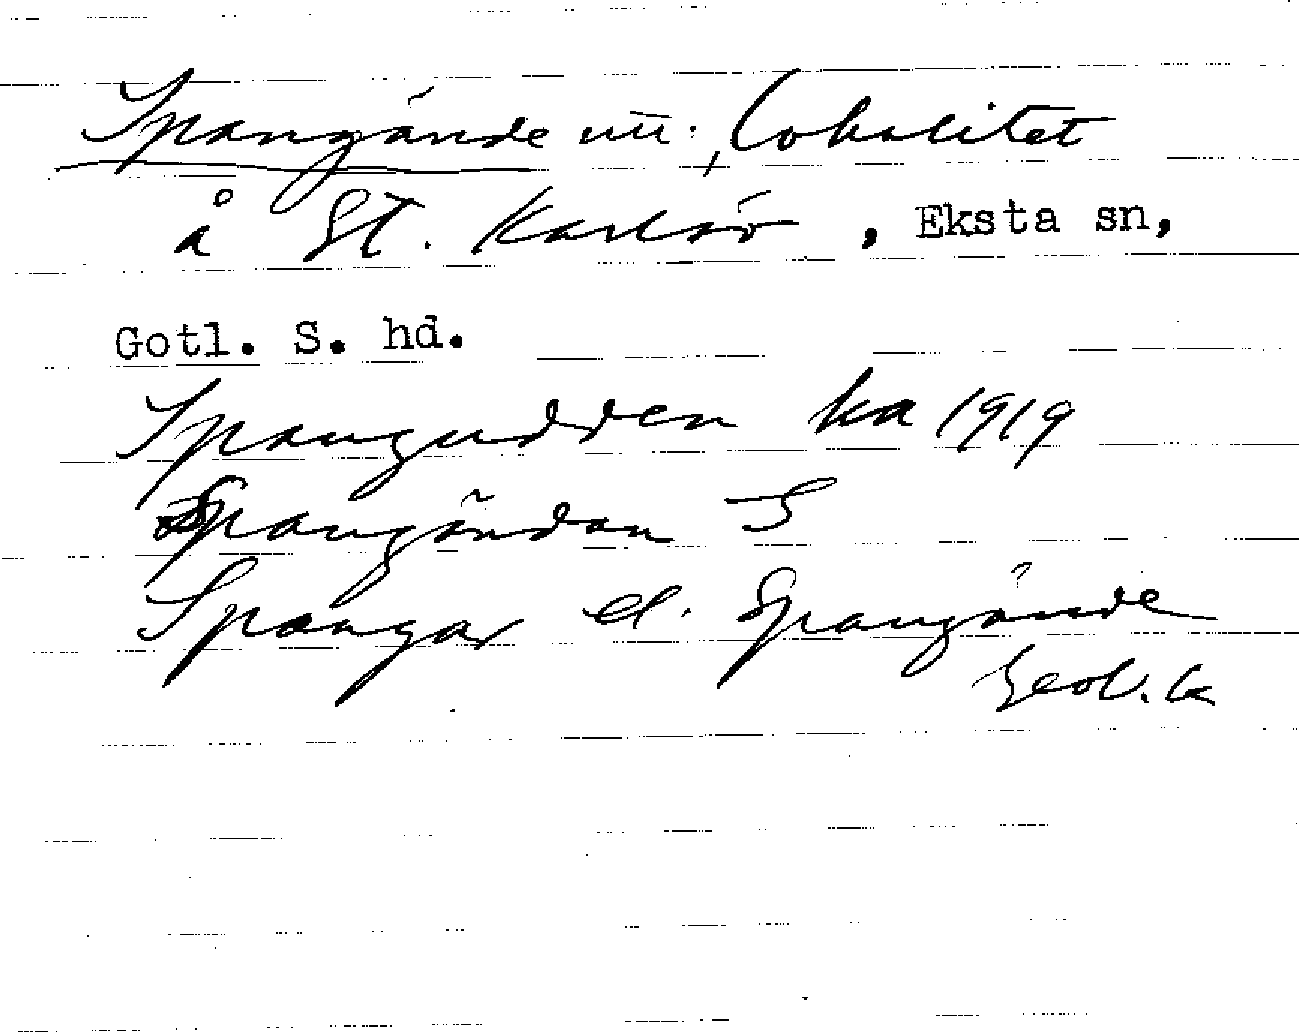 Spangände utt., lokalitet
å St. Karlsö, Eksta sn,
Gotl. S. hd.
Spangudden ka 1919
Spangändan S
Spangar el. Spangände
Geol. k